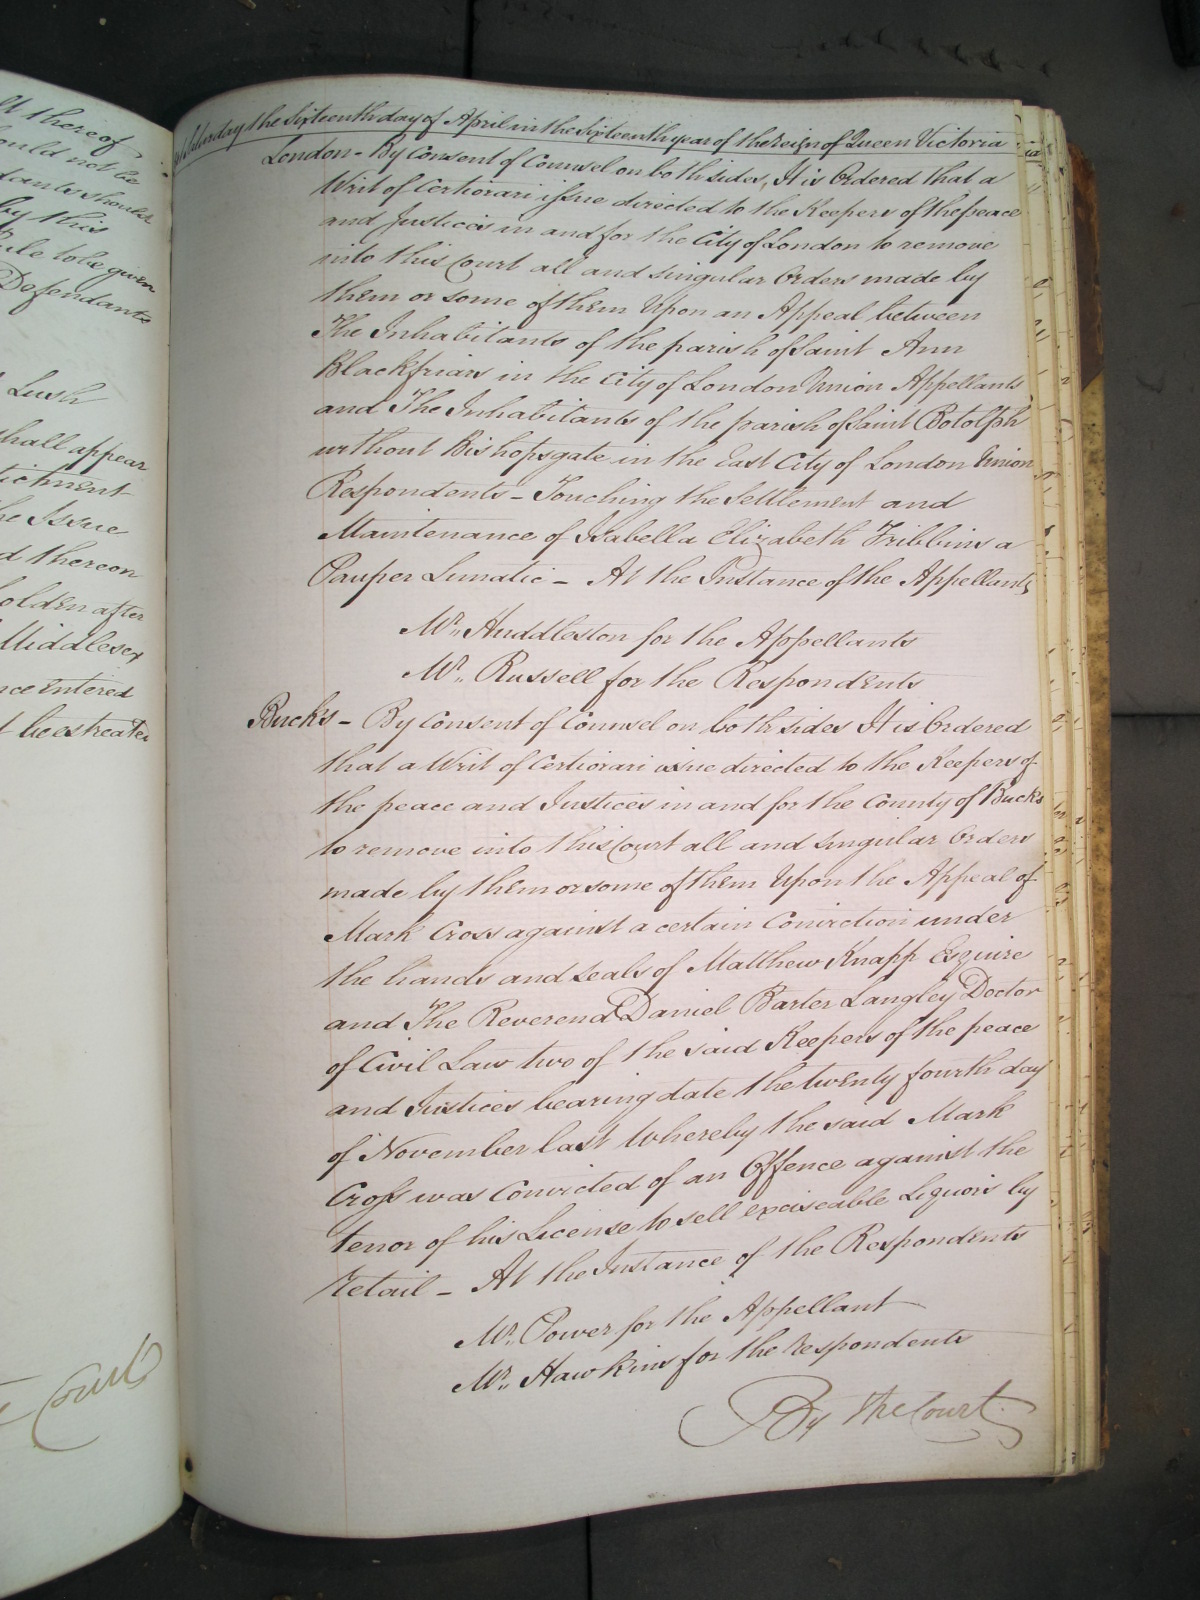 lt thereof
ould not be
dants should
by this
Rule to be given
Defendants
Lush
shall appear
ictment
he Issue
d thereon
olden after
Middlesex
nce entered
t be estreated
Court
Saturday the Sixteenth day of April in the Sixteenth year of the Reign of Queen Victoria
London - By Consent of Counsel on both sides, It is Ordered that a
Writ of Certiorari issue directed to the Keepers of the peace
and Justices in and for the City of London to remove
into this Court all and singular Orders made by
them or some of them Upon an Appeal between
The Inhabitants of the parish of Saint Ann
Blackfriars in the City of London Union Appellants
and The Inhabitants of the parish of Saint Botolph
without Bishopsgate in the East City of London Union
Respondents - Touching the Settlement and
Maintenance of Isabella Elizabeth Tribbins a
Pauper Lunatic - At the Instance of the Appellants
Mr. Huddleston for the Appellants
Mr. Russell for the Respondents
Buck's - By Consent of Counsel on both sides It is Ordered
that a Writ of Certiorari issue directed to the Keepers of
the peace and Justices in and for the County of Buck's
to remove into this Court all and singular Orders
made by them or some of them Upon the Appeal of
Mark Cross against a certain Conviction under
the hands and seals of Matthew Knapp Esquire
and The Reverend Daniel Barter Langley Doctor
of Civil Law two of the said Keepers of the peace
and Justices bearing date the twenty fourth day
of November last Whereby the said Mark
Cross was Convicted of an Offence against the
tenor of his License to sell exciseable Liquors by
retail - At the Instance of the Respondents
Mr. Power for the Appellant
Mr. Hawkins for the Respondents
By the Court